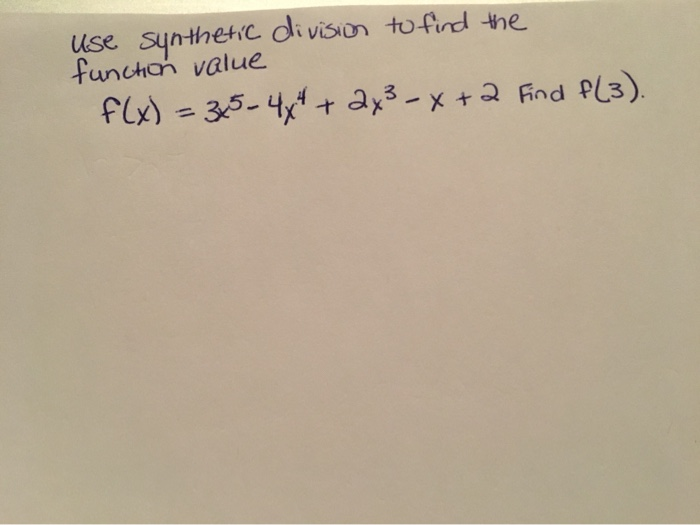 use synthetic division to find the
function value
f(x) = 3x⁵ - 4x⁴ + 2x³ - x + 2 Find f(3).